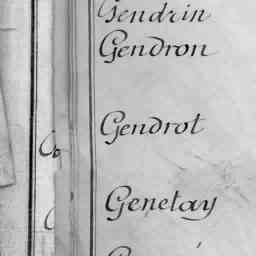 Gendrin
Gendron
Gendrot
Genetay